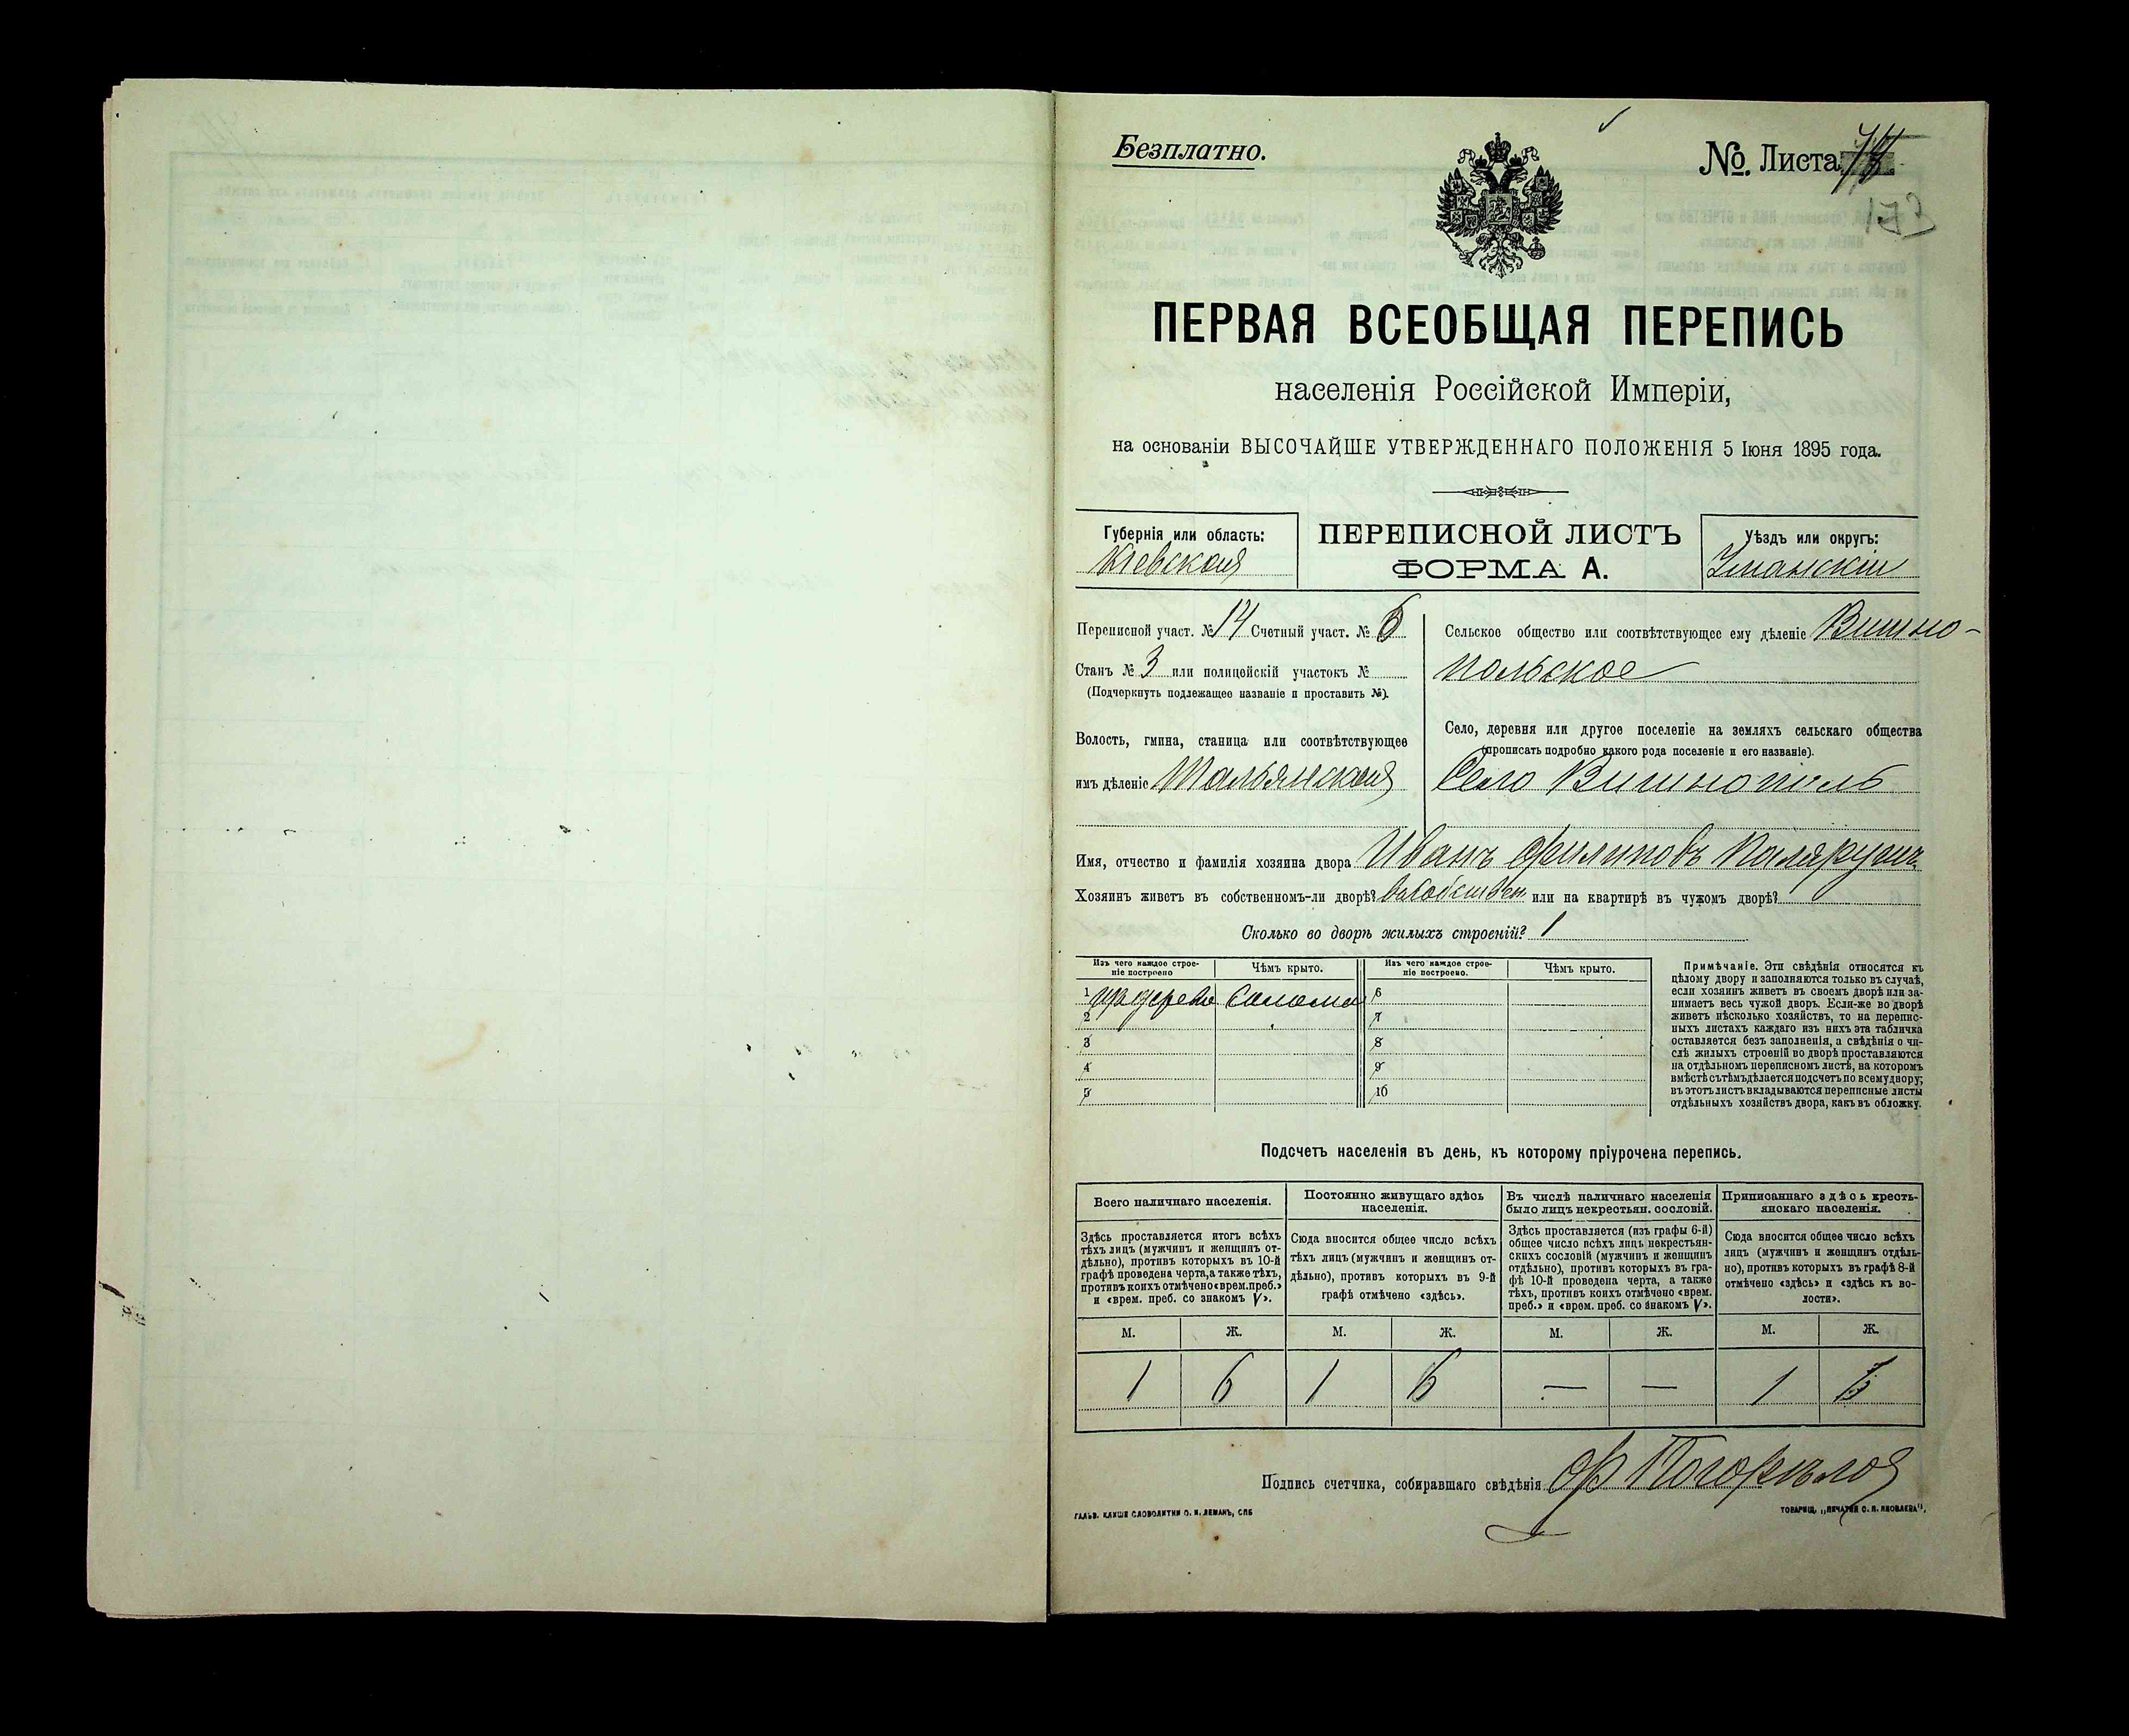 Безплатно.
№. Листа
ПЕРВАЯ ВСЕОБЩАЯ ПЕРЕПИСЬ
населенія Россійской Имперіи,
на основаніи ВЫСОЧАЙШЕ УТВЕРЖДЕННАГО ПОЛОЖЕНІЯ 5 Іюня 1895 года.
Губернія или область:
Кіевская
ПЕРЕПИСНОЙ ЛИСТЪ
ФОРМА А.
Уѣздъ или округъ:
Уманскій
Переписной участ. № 14 Счетный участ. № 6
Станъ № 3 или полицейскій участокъ №
(Подчеркнуть подлежащее названіе и проставить №).
Волость, гмина, станица или соотвѣтствующее
имъ дѣленіе Тальянская
Сельское общество или соотвѣтствующее ему дѣленіе Вишно-
польское
Село, деревня или другое поселеніе на земляхъ сельскаго общества
(прописать подробно какого рода поселеніе и его названіе).
Село Вишнополь
Имя, отчество и фамилія хозяина двора Иванъ Филиповъ
Хозяинъ живетъ въ собственномъ-ли дворѣ? въ собствен. или на квартирѣ въ чужомъ дворѣ?
Сколько во дворѣ жилыхъ строеній? 1
Изъ чего каждое строе-
ніе построено
Чѣмъ крыто.
Изъ чего каждое строе-
ніе построено.
Чѣмъ крыто.
1 дерева Солома 6
2 7
3 8
4 9
5 10
Примѣчаніе. Эти свѣдѣнія относятся къ
цѣлому двору и заполняются только въ случаѣ,
если хозяинъ живетъ въ своемъ дворѣ или за-
нимаетъ весь чужой дворъ. Если-же во дворѣ
живетъ нѣсколько хозяйствъ, то на перепис-
ныхъ листахъ каждаго изъ нихъ эта табличка
оставляется безъ заполненія, а свѣдѣнія о чи-
слѣ жилыхъ строеній во дворѣ проставляются
на отдѣльномъ переписномъ листѣ, на которомъ
вмѣстѣ съ тѣмъ дѣлается подсчетъ по всему двору;
въ этотъ листъ вкладываются переписные листы
отдѣльныхъ хозяйствъ двора, какъ въ обложку.
Подсчетъ населенія въ день, къ которому пріурочена перепись.
Всего наличнаго населенія.
Здѣсь проставляется итогъ всѣхъ
тѣхъ лицъ (мужчинъ и женщинъ от-
дѣльно), противъ которыхъ въ 10-й
графѣ проведена черта, а также тѣхъ,
противъ коихъ отмѣчено «врем. преб.»
и «врем. преб. со знакомъ V».
Постоянно живущаго здѣсь
населенія.
Сюда вносится общее число всѣхъ
тѣхъ лицъ (мужчинъ и женщинъ от-
дѣльно), противъ которыхъ въ 9-й
графѣ отмѣчено «здѣсь».
Въ числѣ наличнаго населенія
было лицъ некрестьян. сословій.
Здѣсь проставляется (изъ графы 6-й)
общее число всѣхъ лицъ некрестьян-
скихъ сословій (мужчинъ и женщинъ
отдѣльно), противъ которыхъ въ гра-
фѣ 10-й проведена черта, а также
тѣхъ, противъ коихъ отмѣчено «врем.
преб.» и «врем. преб. со знакомъ V».
Приписаннаго здѣсь кресть-
янскаго населенія.
Сюда вносится общее число всѣхъ
лицъ (мужчинъ и женщинъ отдѣль-
но), противъ которыхъ въ графѣ 8-й
отмѣчено «здѣсь» и «здѣсь къ во-
лости».
М. Ж. М. Ж. М. Ж. М. Ж.
1 6 1 6 — — 1 6
Подпись счетчика, собиравшаго свѣдѣнія
ГАЛЬВ. КЛИШЕ СЛОВОЛИТНИ О. И. ЛЕМАНЪ, СПБ
ТОВАРИЩ. „ПЕЧАТНЯ С. П. ЯКОВЛЕВА".